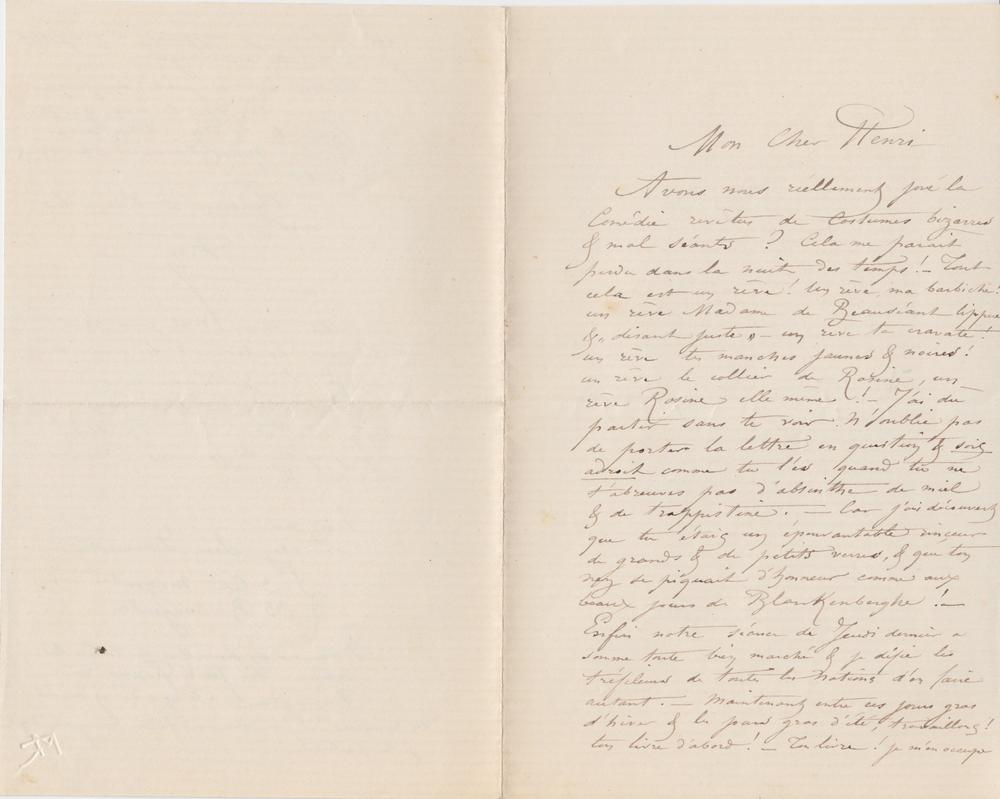 Mon Cher Henri
Avons nous réellement joué la
Comédie revêtus de Costumes bizarres
& mal séants ? Cela me parait
perdu dans la nuit des temps ! — Tout
cela est un rêve ! Un rêve, ma barbiche !
un rêve Madame de Beauséant lippue
& « disant juste » — un rêve ta cravate !
un rêve tes manches jaunes & noires !
un rêve le collier de Rosine, un
rêve Rosine elle même ! — J'ai dû
partir sans te voir. N'oublie pas
de porter la lettre en question & sois
adroit comme tu l'es quand tu ne
t'abreuves pas d'absinthe de miel
& de trappistine. — Car j'ai découvert
que tu étais un épouvantable rinceur
de grands & de petits verres, & que ton
nez se piquait d'honneur comme aux
beaux jours de Blankenberghe ! —
Enfin notre séance de Jeudi dernier a
somme toute bien marché & je défie les
de toutes les Nations d'en faire
autant. — Maintenant entre ces jours gras
d'hiver & les jours gras d'été, travaillons !
ton livre d'abord ! — Ton livre ! je m'en occupe